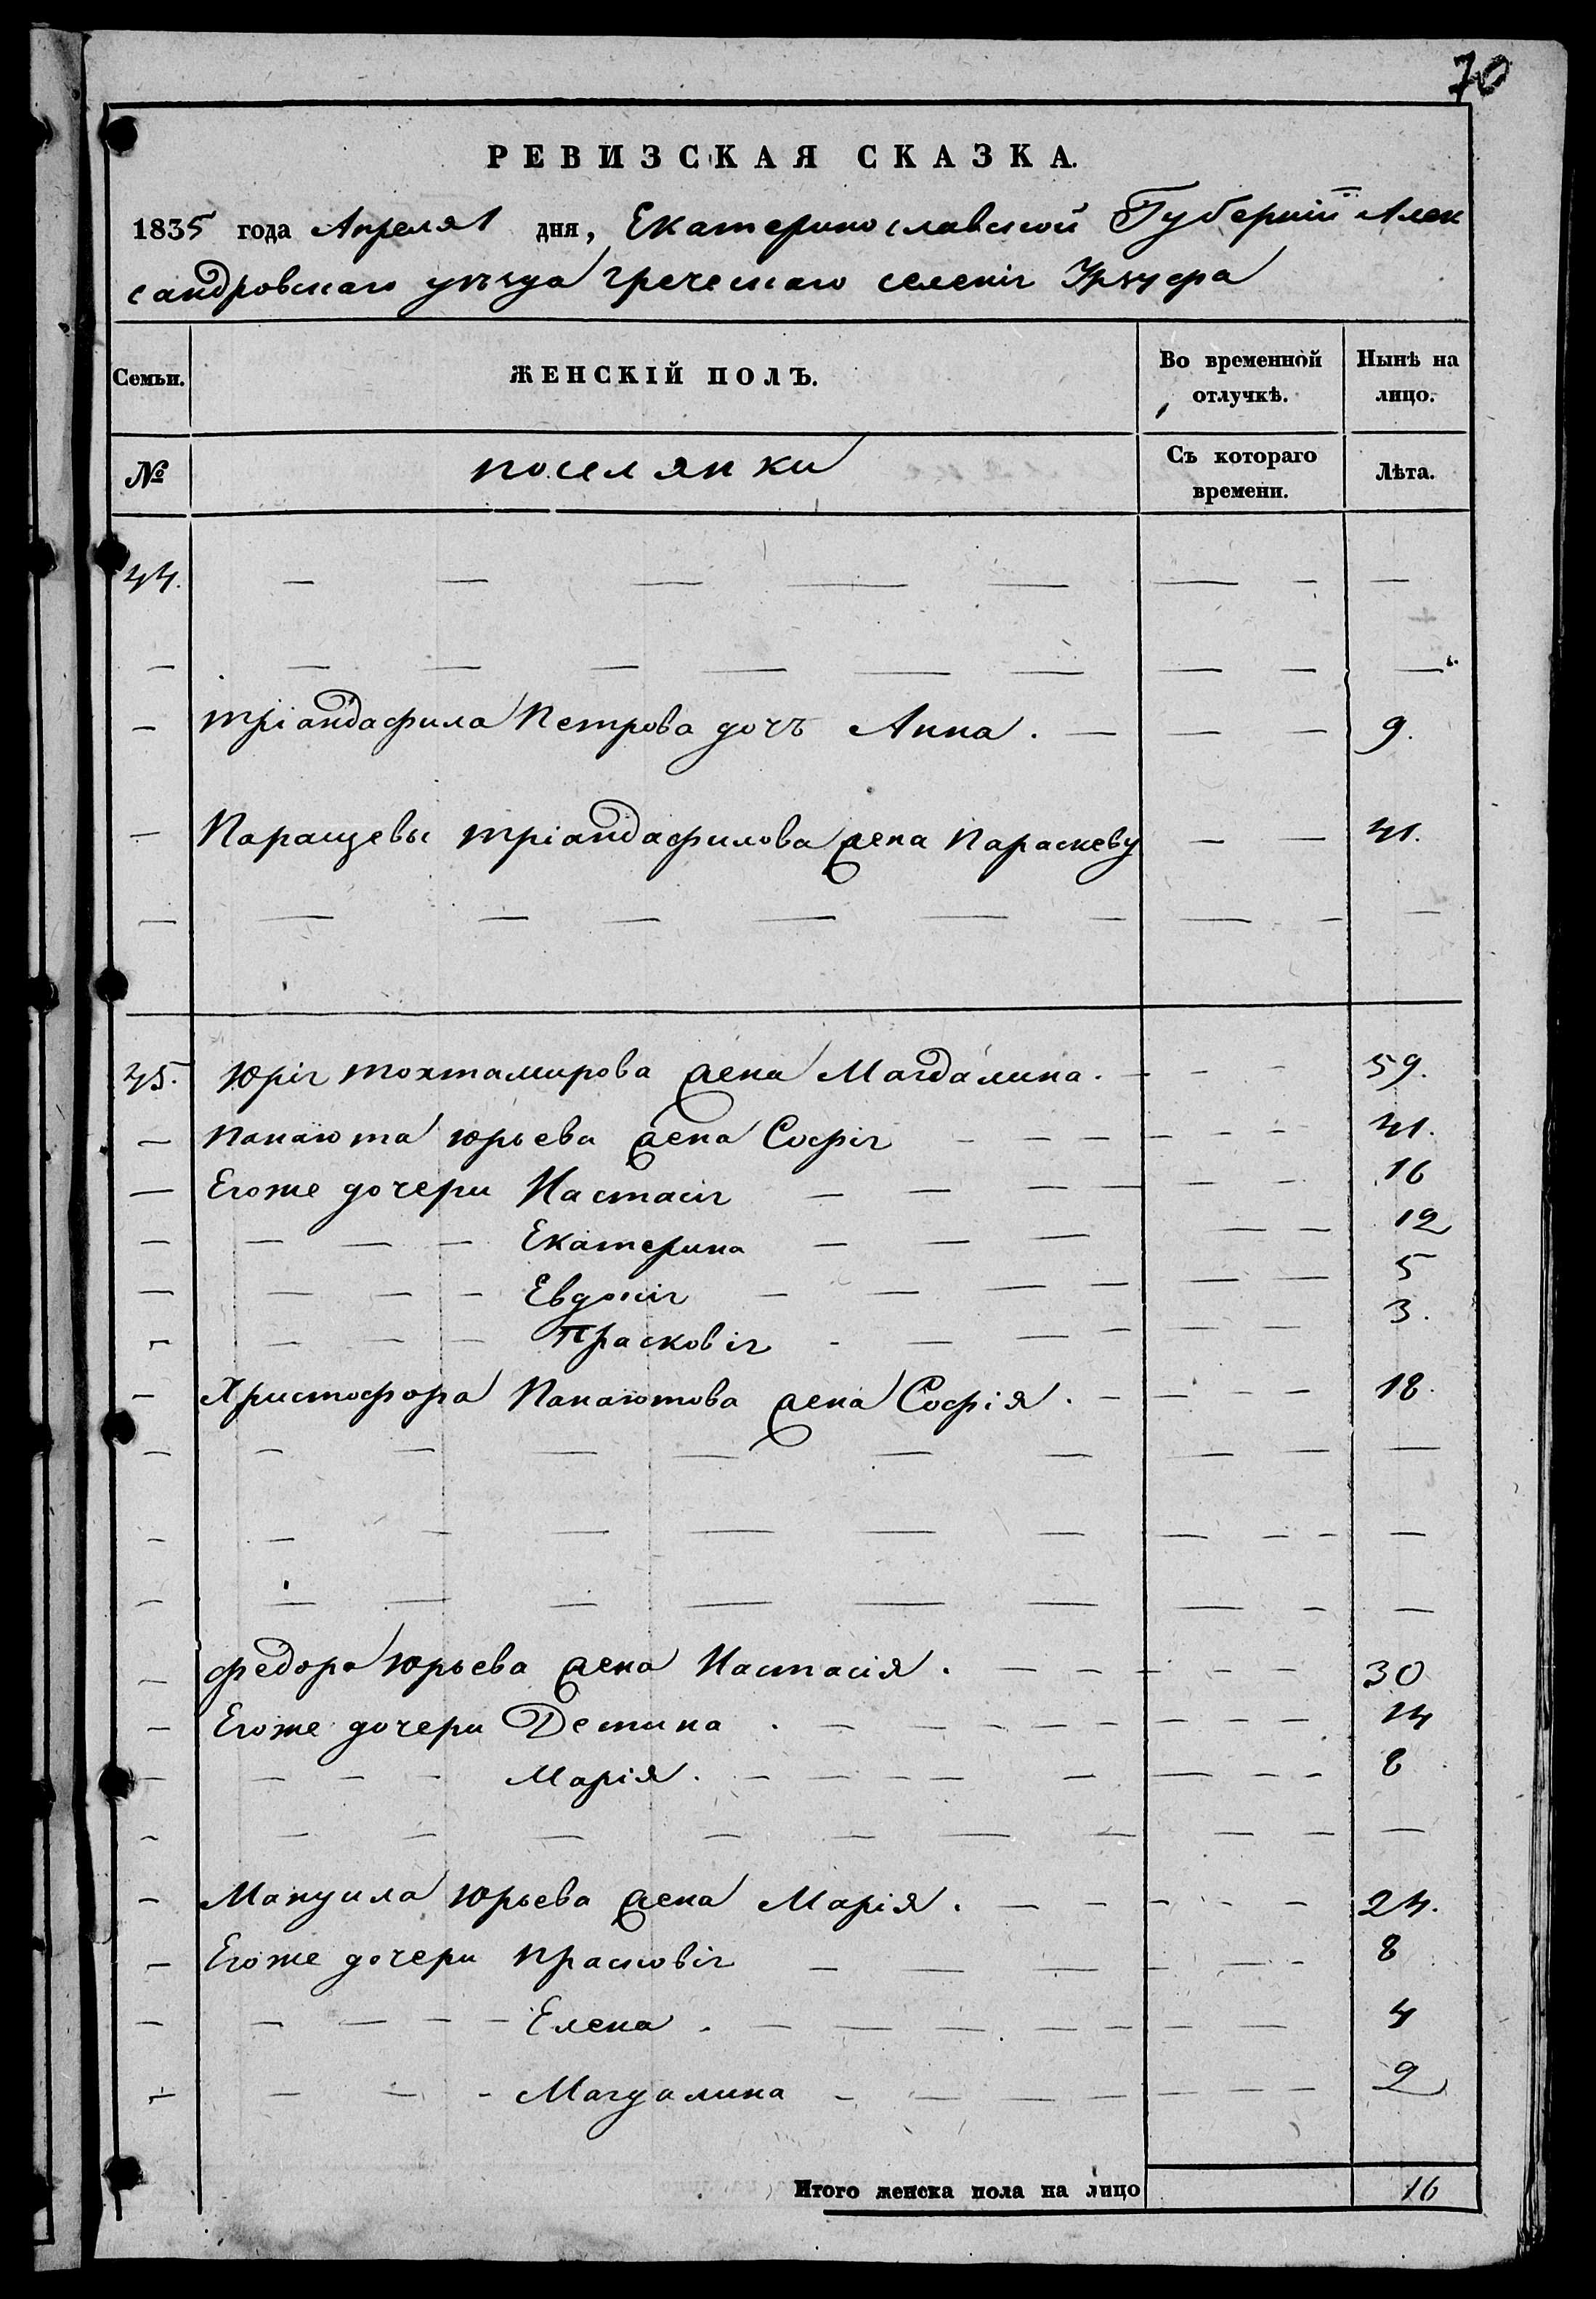 70
РЕВИЗСКАЯ СКАЗКА.
1835 года Апреля 1 дня, Екатеринославской Губерніи Алек
сандровскаго уѣзда греческаго селенія Урзуфа
Семьи. ЖЕНСКІЙ ПОЛЪ. Во временной отлучкѣ. Нынѣ на лицо.
№ поселянки Съ котораго времени. Лѣта.
44. — — — — — — — —
— — — — — — — — — —
— тріандафила Петрова дочъ Анна. — — — 9.
— Паращевы тріандафилова жена Параскеву — — 41.
— — — — — — — — — —
45. Юрія тохтамирова жена Магдалина. — — — 59.
— Панаюта юрьева жена Софія — — — — — — 41.
— Егоже дочери Настасія — — — — — — — 16
— — — — Екатерина — — — — — 12
— — — — Евдокія — — — — — — 5
— — — — Прасковія — — — — — — 3.
— Христофора Панаютова жена Софія. — — — — 18.
— — — — — — — — — — —
— — — — — — — — — — —
— — — — — — — — — — —
— федора юрьева жена Настасія. — — — — — 30
— Егоже дочери Деспина. — — — — — — — — 14
— — — — Марія. — — — — — — — — 8
— — — — — — — — — — — —
— Мануила юрьева жена Марія. — — — — — 24.
— Егоже дочери прасковія — — — — — — 8
— — — — — Елена. — — — — — — — 4
— — — — Магдалина — — — — — — — 2
Итого женска пола на лицо 16